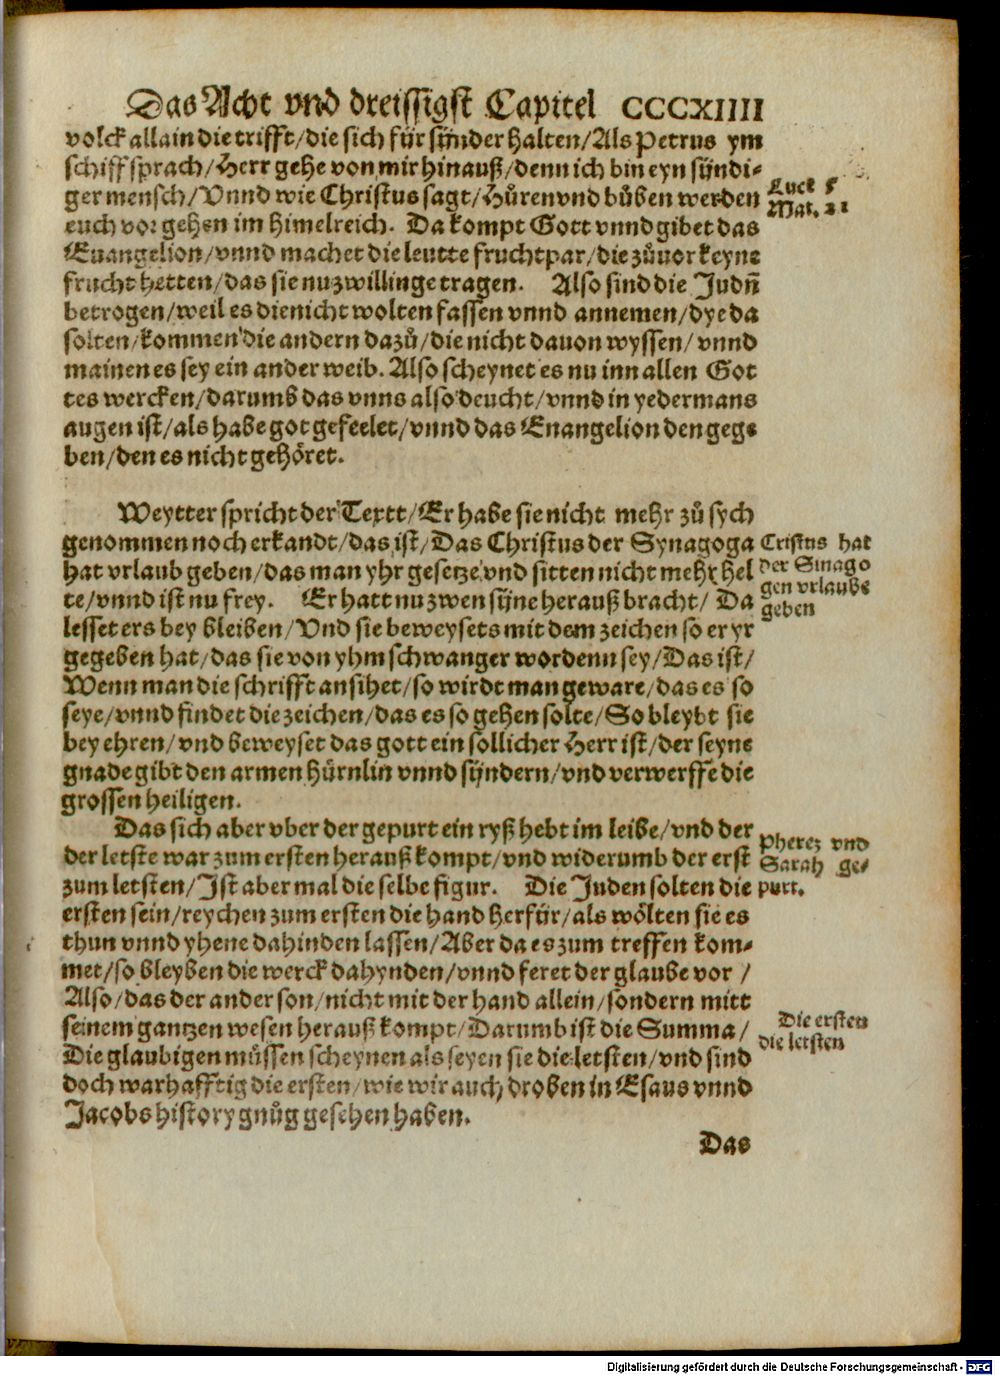 Das Acht vnd dreissigst Capitel CCCXIIII
volck allain die trifft/die sich für sünder halten/Als Petrus ym
schiff sprach/Herr gehe von mir hinauß/denn ich bin eyn sündi-
ger mensch/Vnnd wie Christus sagt/Hůren vnd bůben werden
euch vor gehen im himelreich. Da kompt Gott vnnd gibet das
Euangelion/vnnd machet die leutte fruchtpar/die zůuor keyne
frucht hetten/das sie nu zwillinge tragen. Also sind die Judn̄
betrogen/weil es die nicht wolten fassen vnnd annemen/dye da
solten/kommen die andern dazů/die nicht dauon wyssen/vnnd
mainen es sey ein ander weib. Also scheynet es nu inn allen Got
tes wercken/darumb das vnns also deucht/vnnd in yedermans
augen ist/als habe got gefeelet/vnnd das Euangelion den gege
ben/den es nicht gehöret.
Luce 5
Mat. 21
Weytter spricht der Textt/Er habe sie nicht mehr zů sych
genommen noch erkandt/das ist/Das Christus der Synagoga
hat vrlaub geben/das man yhr gesetze vnd sitten nicht mehr hel
te/vnnd ist nu frey. Er hatt nu zwen süne herauß bracht/Da
lesset ers bey bleiben/Vnd sie beweysets mit dem zeichen so er yr
gegeben hat/das sie von yhm schwanger wordenn sey/Das ist/
Wenn man die schrifft ansihet/so wirdt man geware/das es so
seye/vnnd findet die zeichen/das es so gehen solte/So bleybt sie
bey ehren/vnd beweyset das gott ein sollicher Herr ist/der seyne
gnade gibt den armen hürnlin vnnd sündern/vnd verwerffe die
grossen heiligen.
Cristus hat
der Sinago
gen vrlaube
geben
Das sich aber vber der gepurt ein ryß hebt im leibe/vnd der
der letste war zum ersten herauß kompt/vnd widerumb der erst
zum letsten/Ist aber mal die selbe figur. Die Juden solten die
ersten sein/reychen zum ersten die hand herfür/als wölten sie es
thun vnnd yhene dahinden lassen/Aber da es zum treffen kom-
met/so bleyben die werck dahynden/vnnd feret der glaube vor/
Also/das der ander son/nicht mit der hand allein/sondern mitt
seinem gantzen wesen herauß kompt/Darumb ist die Summa/
Die glaubigen müssen scheynen als seyen sie die letsten/vnd sind
doch warhafftig die ersten/wie wir auch droben in Esaus vnnd
Jacobs history gnůg gesehen haben.
Pherez vnd
Sarah ge-
purt.
Die ersten
die letsten
Das
Digitalisierung gefördert durch die Deutsche Forschungsgemeinschaft - DFG